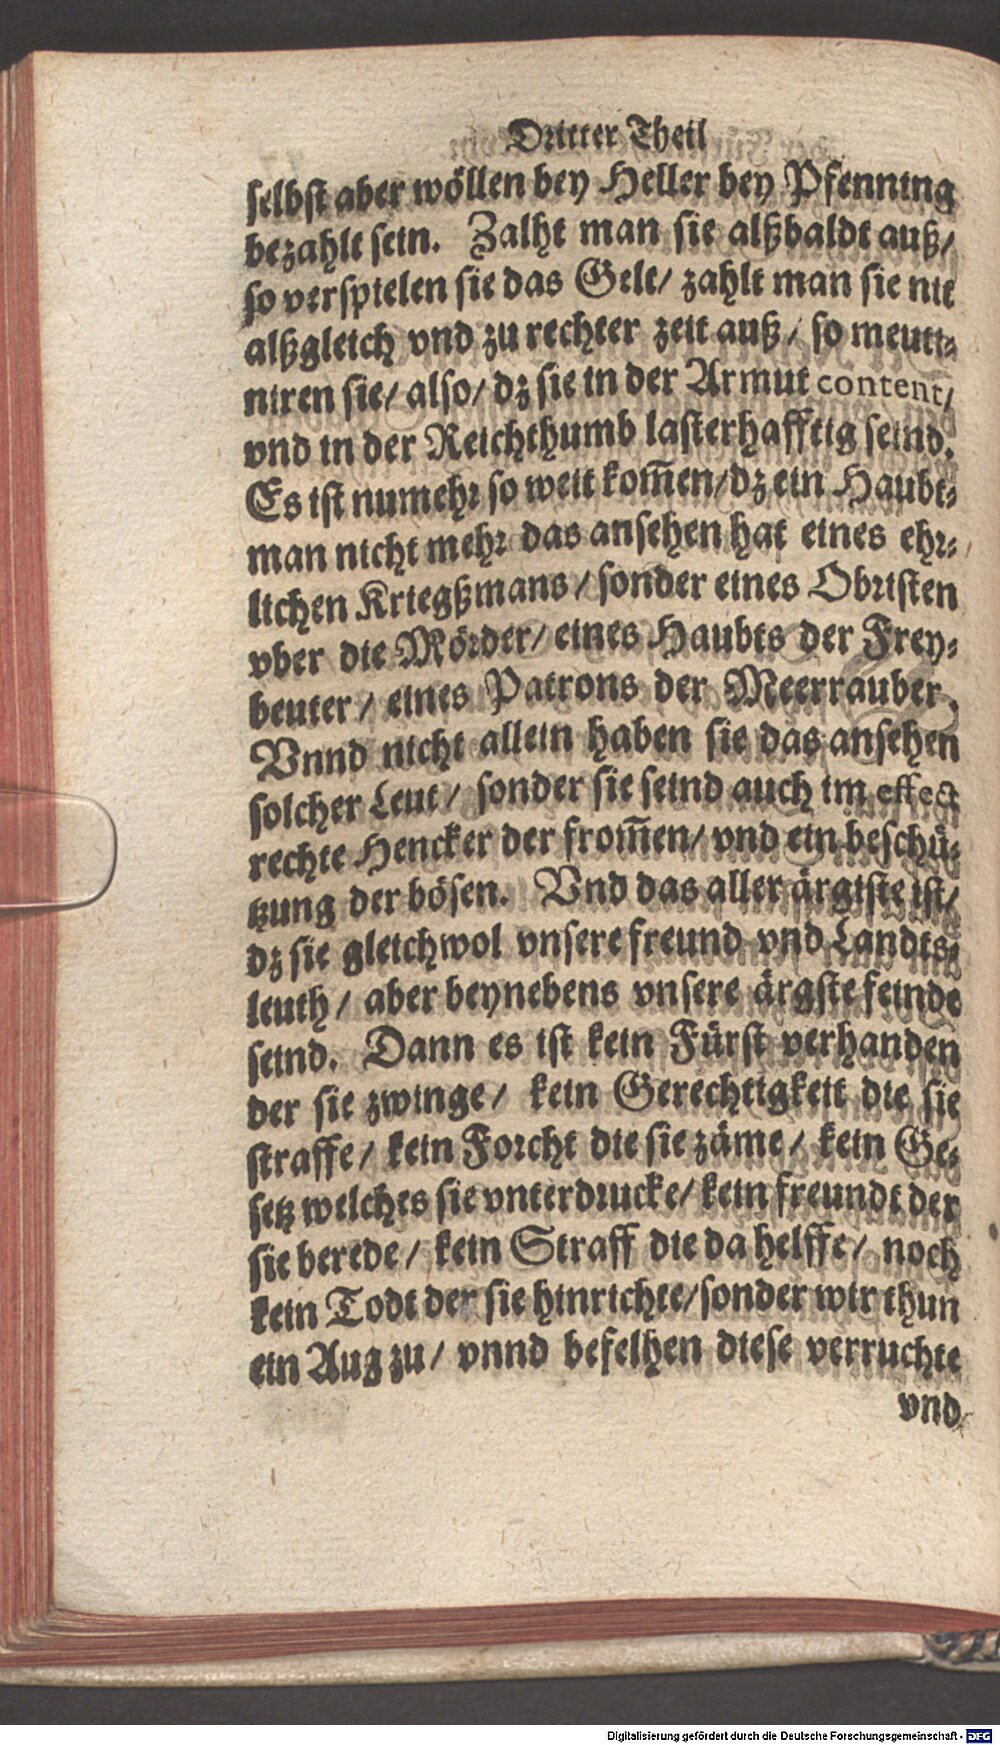 Dritter Theil
selbst aber wöllen bey Heller bey Pfenning
bezahlt sein. Zalht man sie alßbaldt auß/
so verspielen sie das Gelt/ zahlt man sie nit
alßgleich vnd zu rechter zeit auß/ so meuti⸗
niren sie/ also/ dz sie in der Armut content/
vnd in der Reichthumb lasterhafftig seind.
Es ist numehr so weit kom̃en/ dz ein Haubt⸗
man nicht mehr das ansehen hat eines ehr⸗
lichen Kriegßmans/ sonder eines Obristen
vber die Mörder/ eines Haubts der Frey⸗
beuter/ eines Patrons der Meerrauber.
Vnnd nicht allein haben sie das ansehen
solcher Leut/ sonder sie seind auch im effect
rechte Hencker der from̃en/ vnd ein beschü⸗
tzung der bösen. Vnd das aller ärgiste ist/
dz sie gleichwol vnsere freund vnd Landts⸗
leuth/ aber beynebens vnsere ärgste feinde
seind. Dann es ist kein Fürst verhanden
der sie zwinge/ kein Gerechtigkeit die sie
straffe/ kein Forcht die sie zäme/ kein Ge⸗
setz welches sie vnterdrucke/ kein freundt der
sie berede/ kein Straff die da helffe/ noch
kein Todt der sie hinrichte/ sonder wir thun
ein Aug zu/ vnnd befelhen diese verruchte
vnd
Digitalisierung gefördert durch die Deutsche Forschungsgemeinschaft - DFG